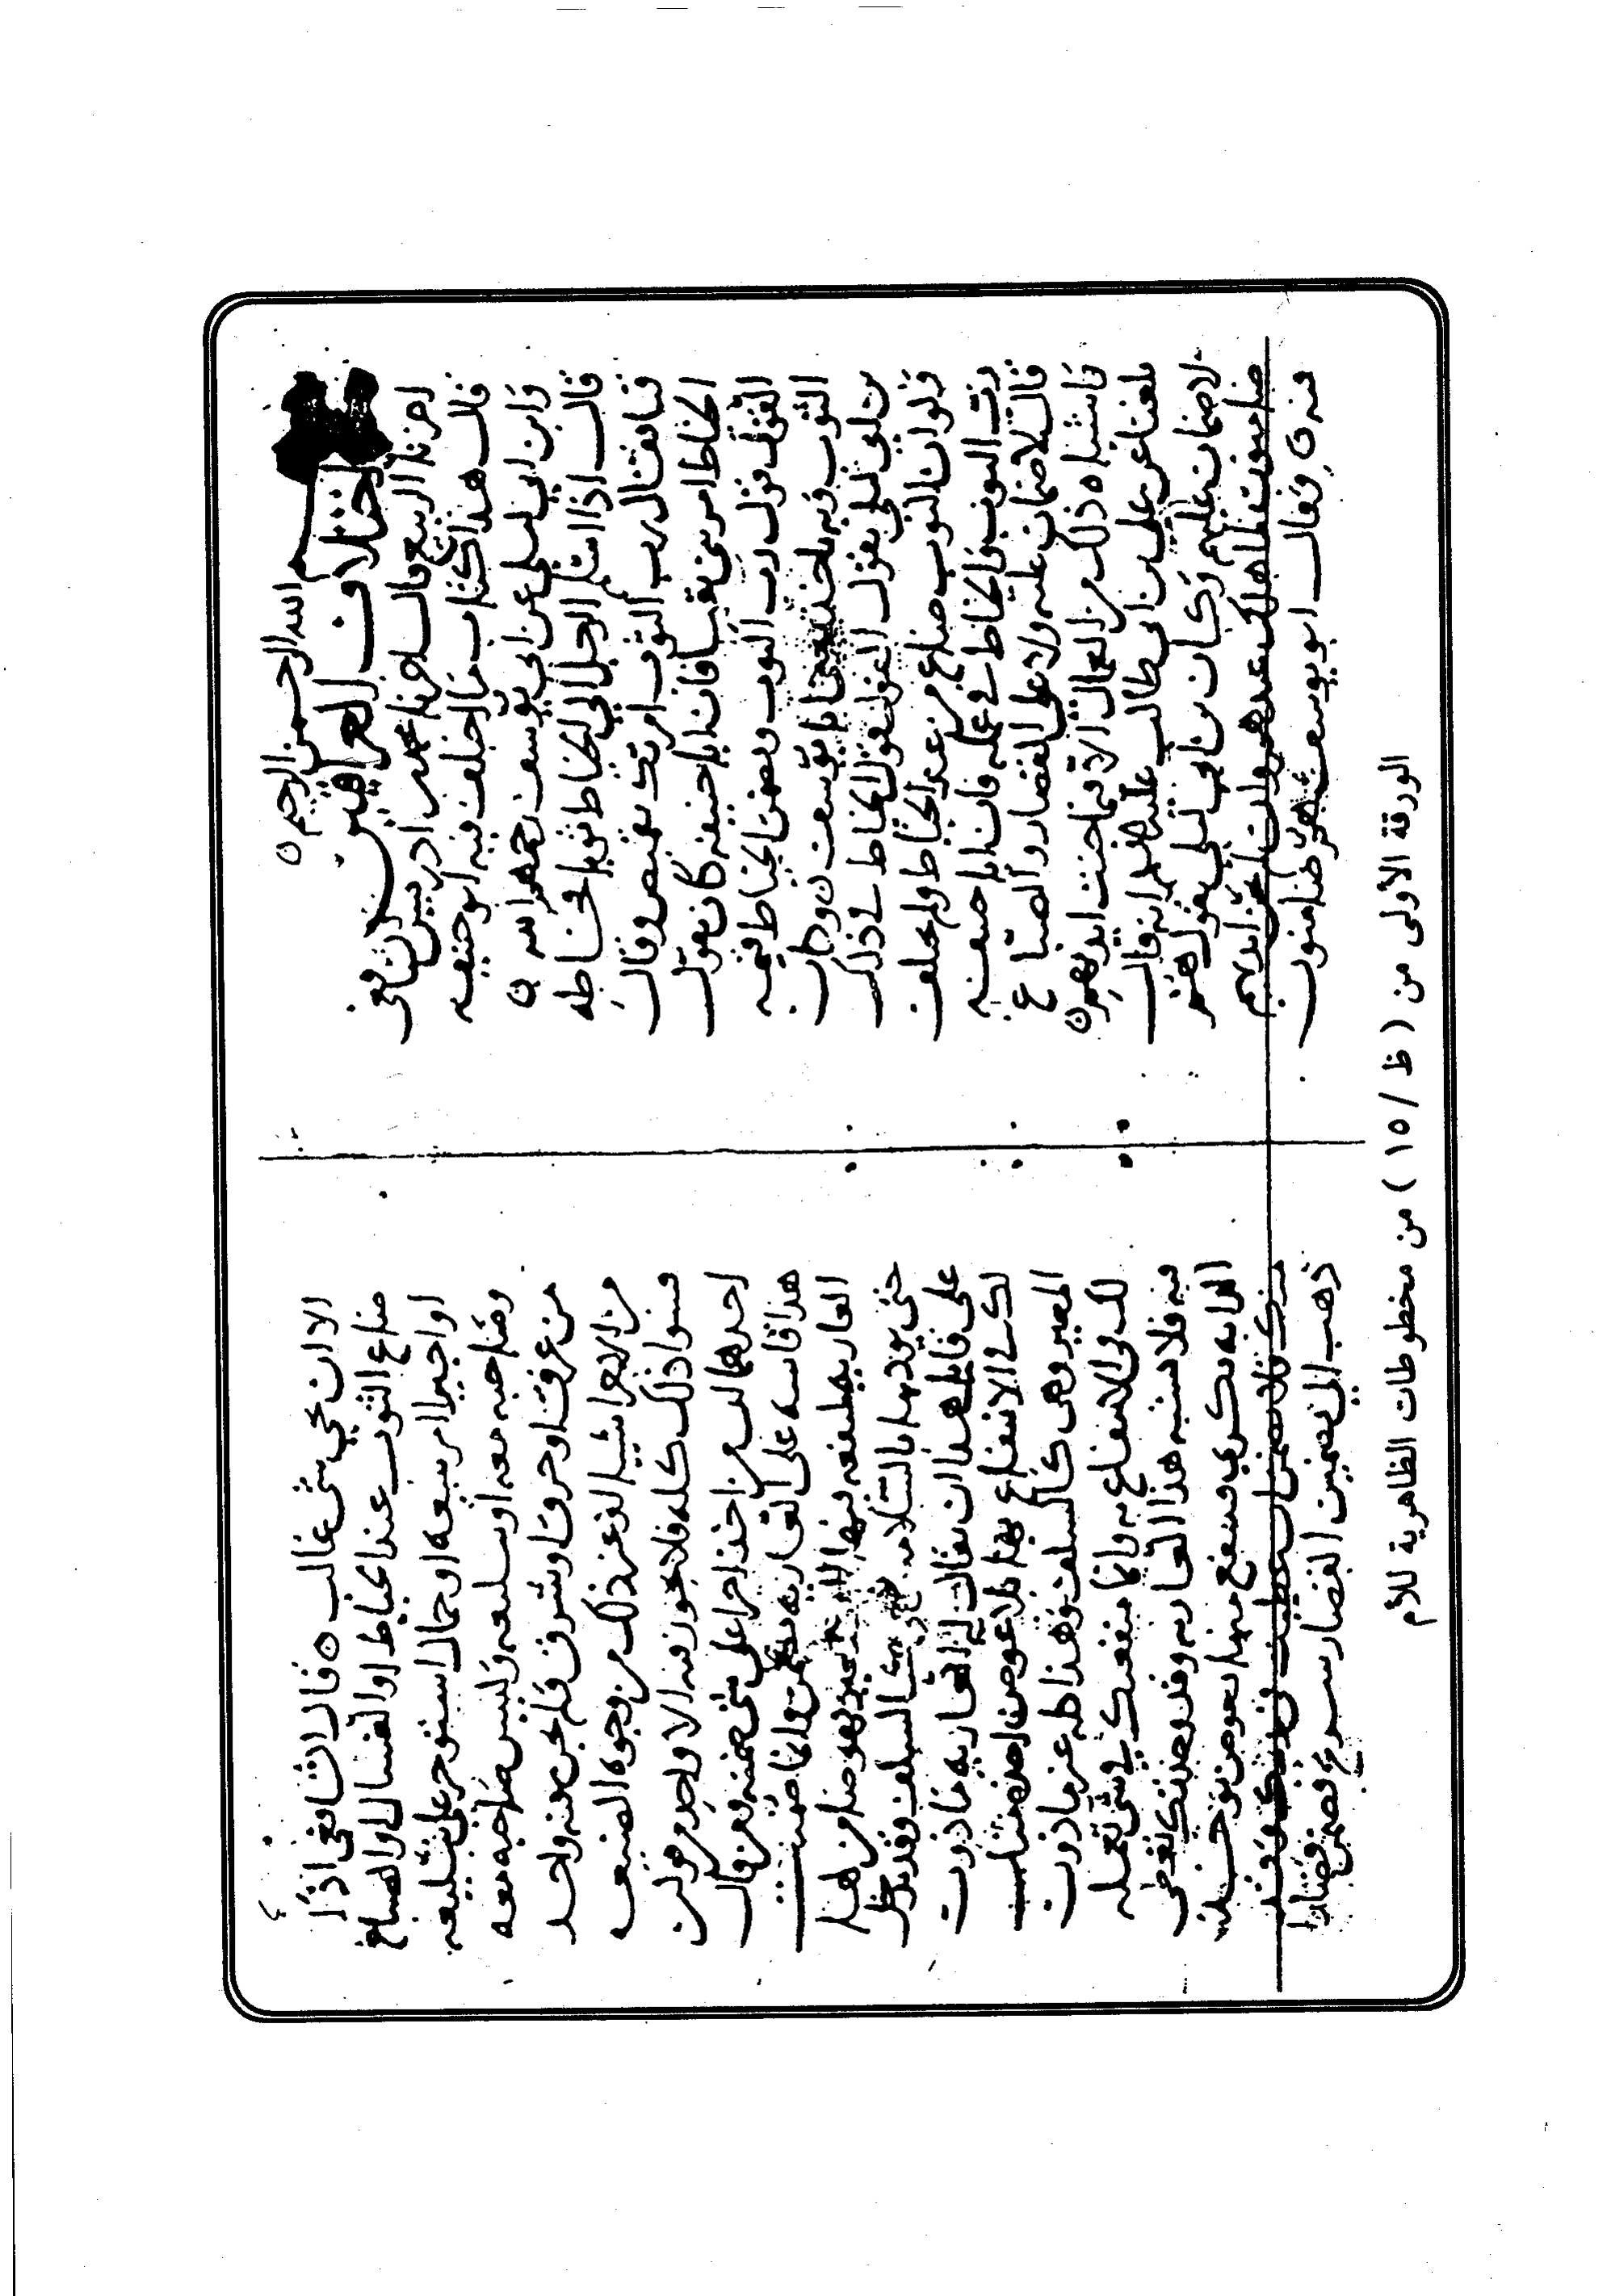 بسم الله الرحمن الرحيم
اختلاف العراقيين
اخبرنا الربيع قال اخبرنا محمد بن ادريس الشافعي
قال هذا كتاب ما اختلف فيه ابو حنيفه
وابن ابي ليلى عن ابي يوسف رحمهم الله
قال اذا اسلم الرجل الى الخياط ثوبا فخاطه
قبا فقال رب الثوب امرتك بقميص وقال
الخياط امرتني بقبا فان ابا حنيفه كان يقول
القول قول رب الثوب ويضمن الخياط قيمه
الثوب وبه ياخذ يعني ابا يوسف وكان
بن ابي ليلى يقول القول قول الخياط في ذلك
ولو ان الثوب ضاع من عند الخياط ولم يختلف
رب الثوب والخياط في عمله فان ابا حنيفه
قال لا ضمان عليه ولا على القصار والصباغ
وما اشبه ذلك من العمال الا فيما جنت ايديهم
بلغنا عن علي بن ابي طالب انه قال
لا ضمان عليهم وكان بن ابي ليلى يقول هم
ضامنون لما هلك عندهم وان لم تجن ايديهم
فيه وقال ابو يوسف هم ضامنون
الا ان يجي شي غالب قال الشافعي اذا
ضاع الثوب عند الخياط او الغسال او الصباغ
او اجير امر ببيعه او حمال استوجر على تبليغه
وصاحبه معه او تبليغه وليس صاحبه معه
من غرق او حرق او سرق فلم يجن فيه واحد
من الاجرا شيا او غير ذلك من وجوه الضيعه
فسوا ذلك كله فلا يجوز فيه الا واحد من قولين
احدهما ان من اخذ اجرا على شي ضمنه ومن قال
هذا قاسه على العاريه تضمن وانما ضمنت
العاريه لمنفعه فيها للمستعير فهو ضامن لها
حتى يوديها بالسلامه وهي كالسلف وقد يدخل
على قايل هذا ان يقال له العاريه ماذون
لك في الانتفاع بها بلا عوض اخذه منك
المعير وهي كالسلف وهذا كله غير ماذون
لك في الانتفاع به وانما منفعتك في شي تعمله
فيه فلا يشبه هذا العاريه وقد وجدتك تعطي
الدابه بكري فتنتفع منها بعوض يوخذ
منك فلا تضمن ان عطبت في يديك وقد
ذهب الى تضمين القصار شريح فضمن قصارا
الورقة الأولى من ( ظ / ١٥ ) من مخطوطات الظاهرية للأم